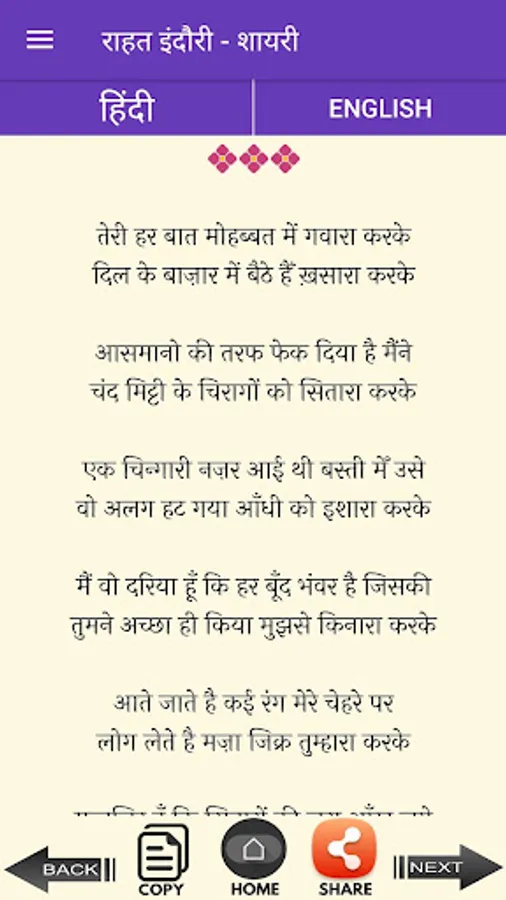 राहत इंदौरी - शायरी
हिंदी
ENGLISH
तेरी हर बात मोहब्बत में गवारा करके
दिल के बाज़ार में बैठे हैँ ख़सारा करके
आसमानो की तरफ फेक दिया है मैंने
चंद मिट्टी के चिरागों को सितारा करके
एक चिन्गारी नज़र आई थी बस्ती मेँ उसे
वो अलग हट गया आँधी को इशारा करके
मैं वो दरिया हूँ कि हर बूँद भंवर है जिसकी
तुमने अच्छा ही किया मुझसे किनारा करके
आते जाते है कई रंग मेरे चेहरे पर
लोग लेते है मज़ा जिक्र तुम्हारा करके
BACK
COPY
HOME
SHARE
NEXT